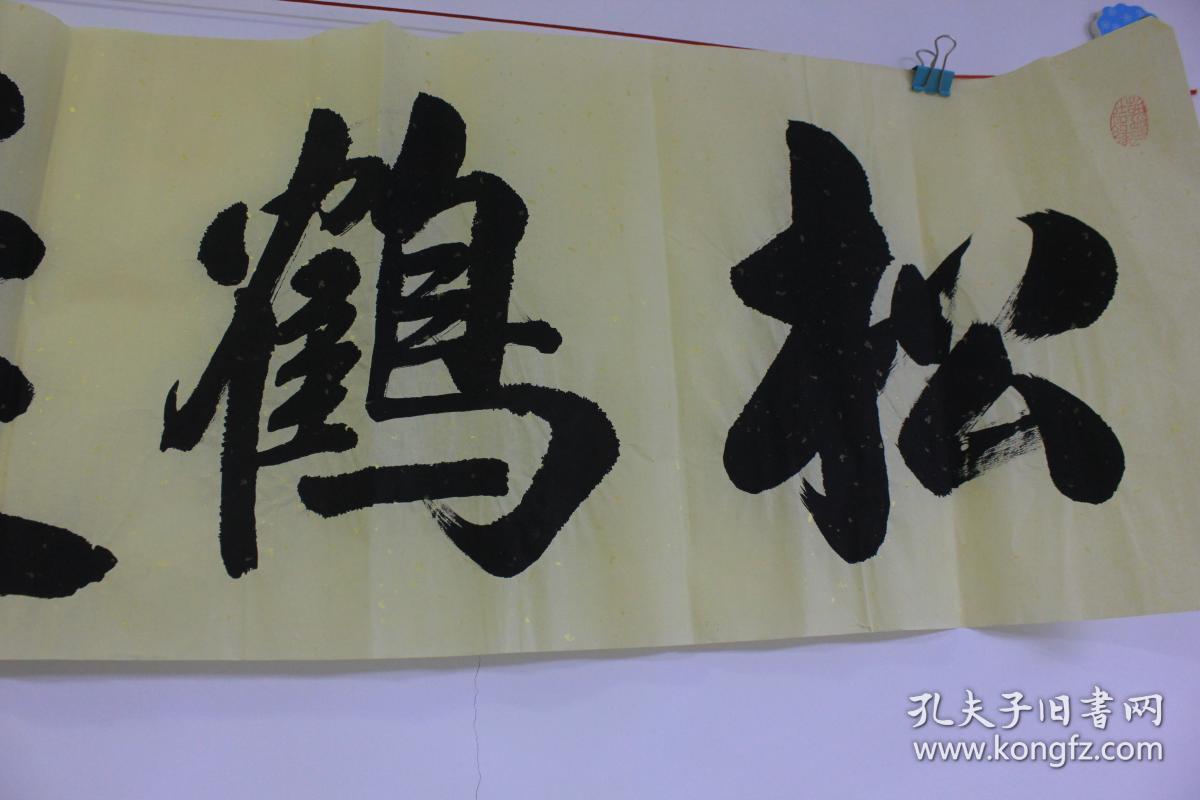 松鹤
孔夫子旧書网
www.kongfz.com